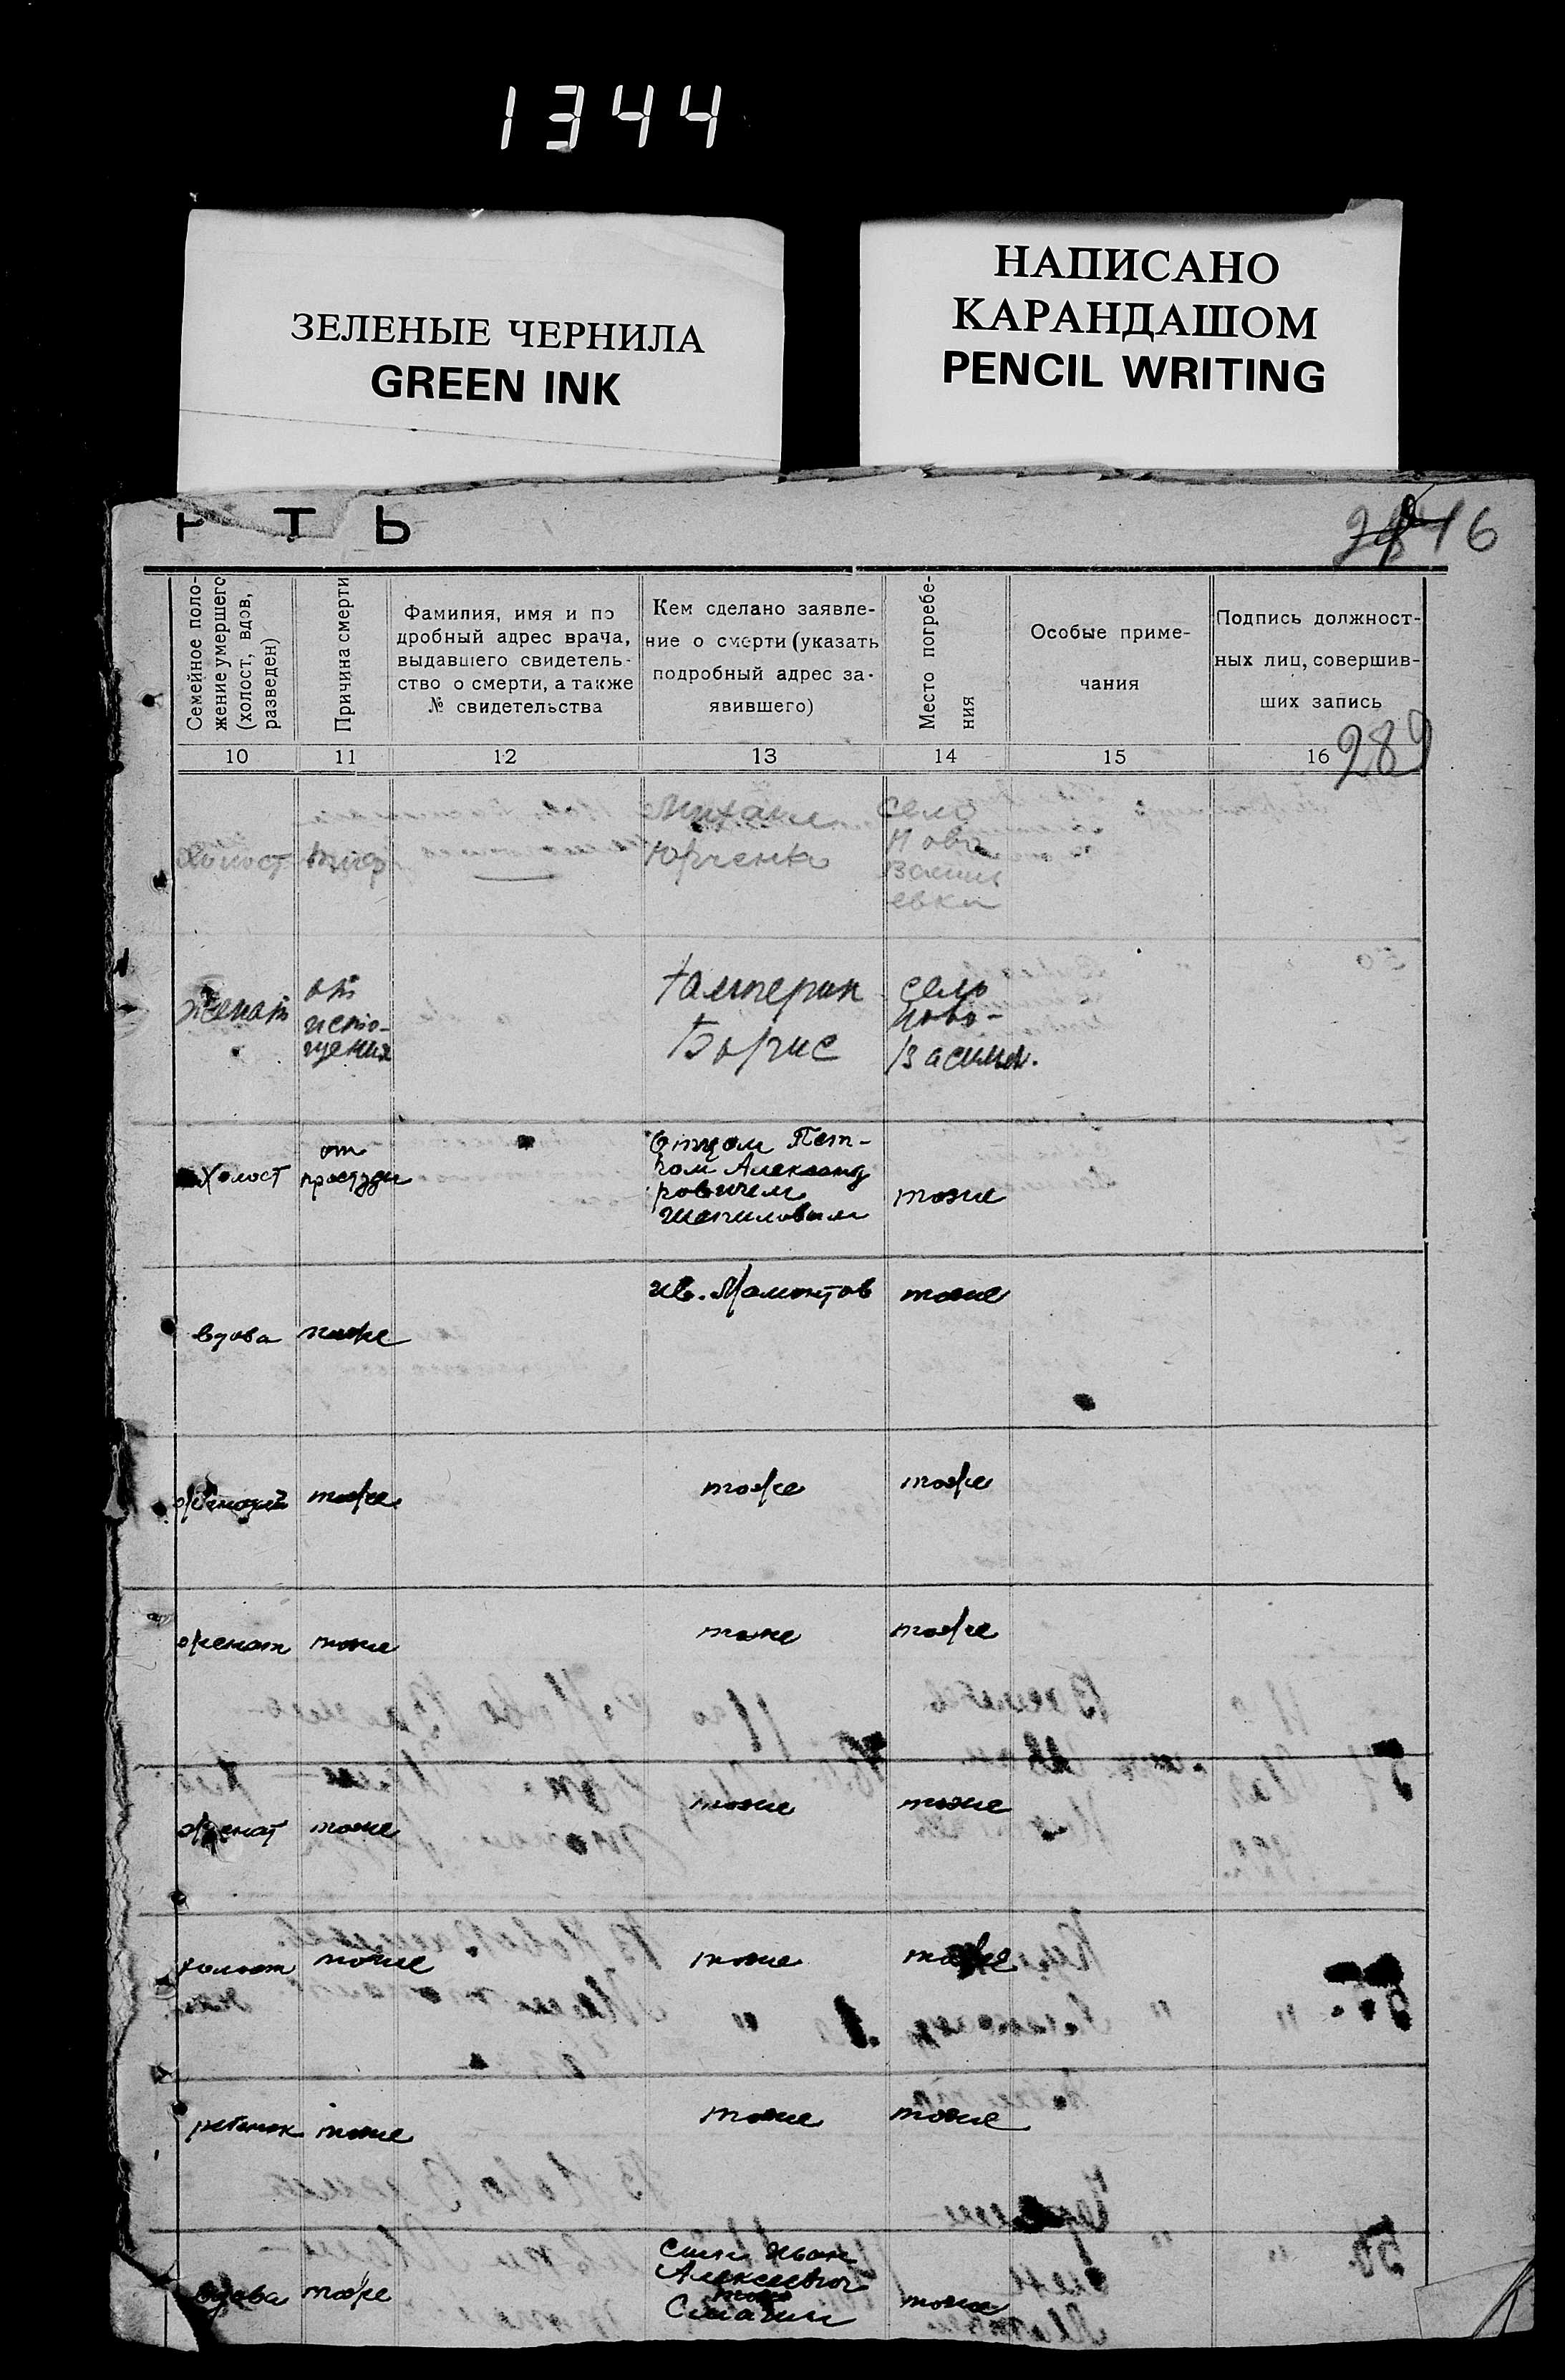 1344
ЗЕЛЕНЫЕ ЧЕРНИЛА
GREEN INK
НАПИСАНО
КАРАНДАШОМ
PENCIL WRITING
Р Т Ь
16
Семейное поло-
жение умершего
(холост, вдов,
разведен)
Причина смерти
Фамилия, имя и по
дробный адрес врача,
выдавшего свидетель-
ство о смерти, а также
№ свидетельства
Кем сделано заявле-
ние о смерти (указать
подробный адрес за-
явившего)
Место погребе-
ния
Особые приме-
чания
Подпись должност-
ных лиц, совершив-
ших запись
10 11 12 13 14 15 16
289
Холост
тиф
Михаил
Юрченко
село
Ново
Васил
евка
Женат
от
исто-
щения
Борис
село
Ново-
Васильев.
Холост
от
простуди
Отцом Пет-
ром Александ
ровичем
Шапиловым
тоже
вдова
тоже
ив. Мамонтов
тоже
тоже
тоже
тоже
женат
тоже
тоже
тоже
женат
тоже
тоже
тоже
холост
тоже
тоже
тоже
ребенок
тоже
тоже
тоже
вдова
тоже
Сын Иван
Алексеевич
Смагин
тоже